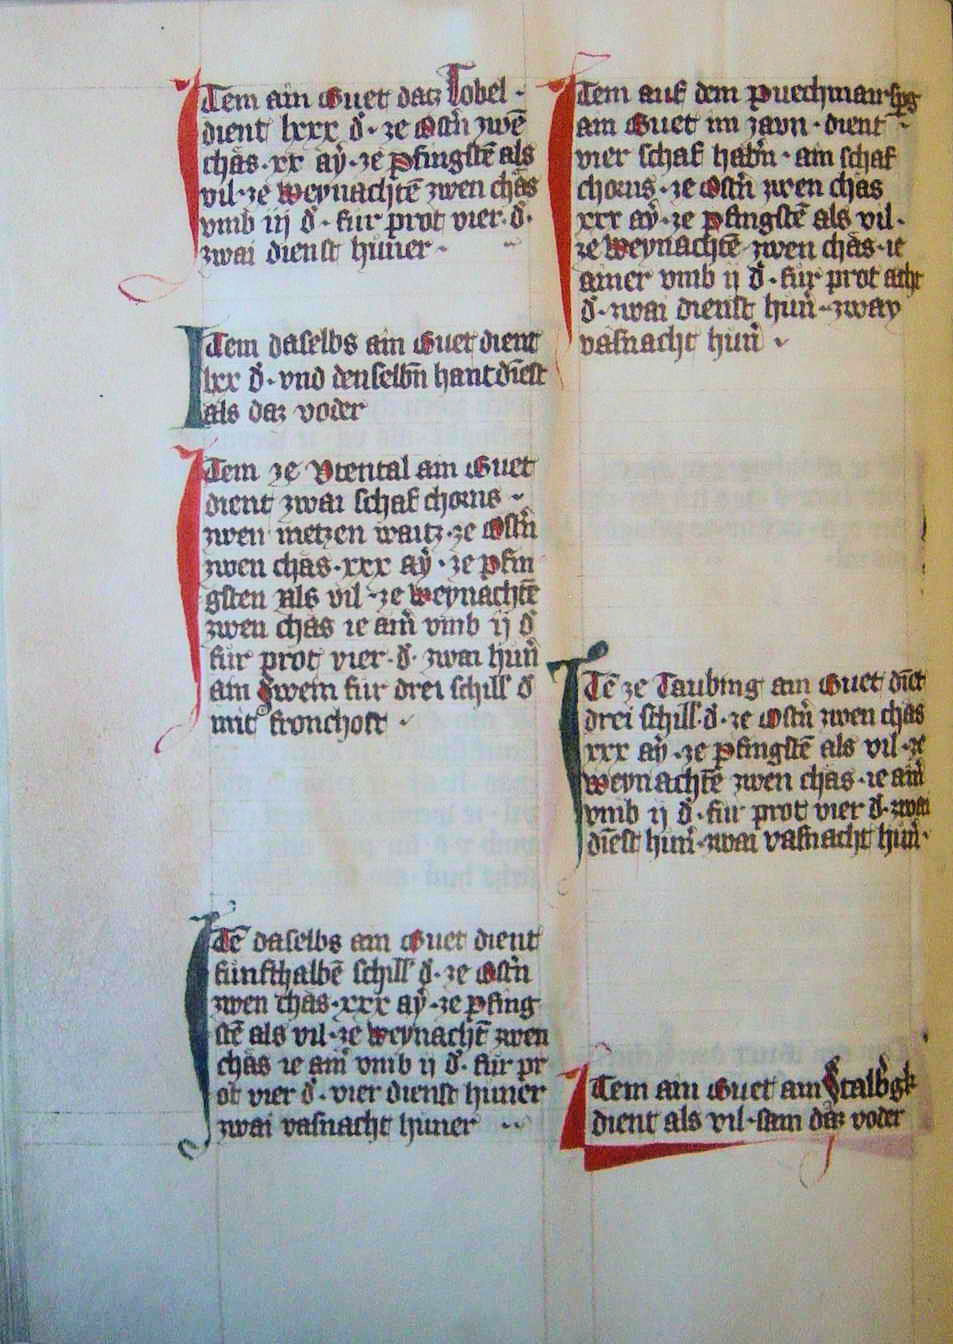 Item ain Guet datz Tobel ·
dient lxxx d̄ · ze Ostn̄ zwē
chäs · xx aÿ · ze Pfingstē als
vil · ze Weynachtē zwen chäs
vmb iij d̄ · fur prot vier · d̄ ·
zwai dienst huner ·
Item daselbs ain Guet dient
lxx d̄ · vnd denselbn̄ hantdīest
als daz voder
Item ze Vtental ain Guet
dient zwai schaf chorns ·
zwen metzen waitz · ze Ostn̄
zwen chäs · xxx aÿ · ze Pfin
gsten als vil · ze Weynachtē
zwen chäs ie am̄ vmb ij d̄
fur prot vier · d̄ · zwai hun̄
ain Swein fur drei schill d̄
mit fronchost ·
Itē daselbs ain Guet dient
funfthalbē schill d̄ · ze Ostn̄
zwen chäs · xxx aÿ · ze Pfing
stē als vil · ze Weynachtē zwen
chäs ie am̄ vmb ij d̄ · fur pr
ot vier d̄ · vier dienst huner
zwai vasnacht huner ··
Item auf dem Puechmans pg
ain Guet im zavn · dient
vier schaf habn̄ · ain schaf
chorns · ze Ostn̄ zwen chäs
xxx aÿ · ze Pfingstē als vil ·
ze Weynachtē zwen chäs · ie
ainer vmb ij d̄ · fur prot acht
d̄ · zwai dienst hun̄ · zway
vasnacht hun̄ ·
Itē ze Taubing ain Guet dīet
drei schill · d̄ · ze Ostn̄ zwen chäs
xxx aÿ · ze Pfingstē als vil · ze
Weynachtē zwen chäs · ie am̄
vmb ij d̄ · fur prot vier d̄ · zwai
dīest hun̄ · zwai vasnacht hun̄ ·
Item ain Guet am Stalbgk
dient als vil · sam daz voder